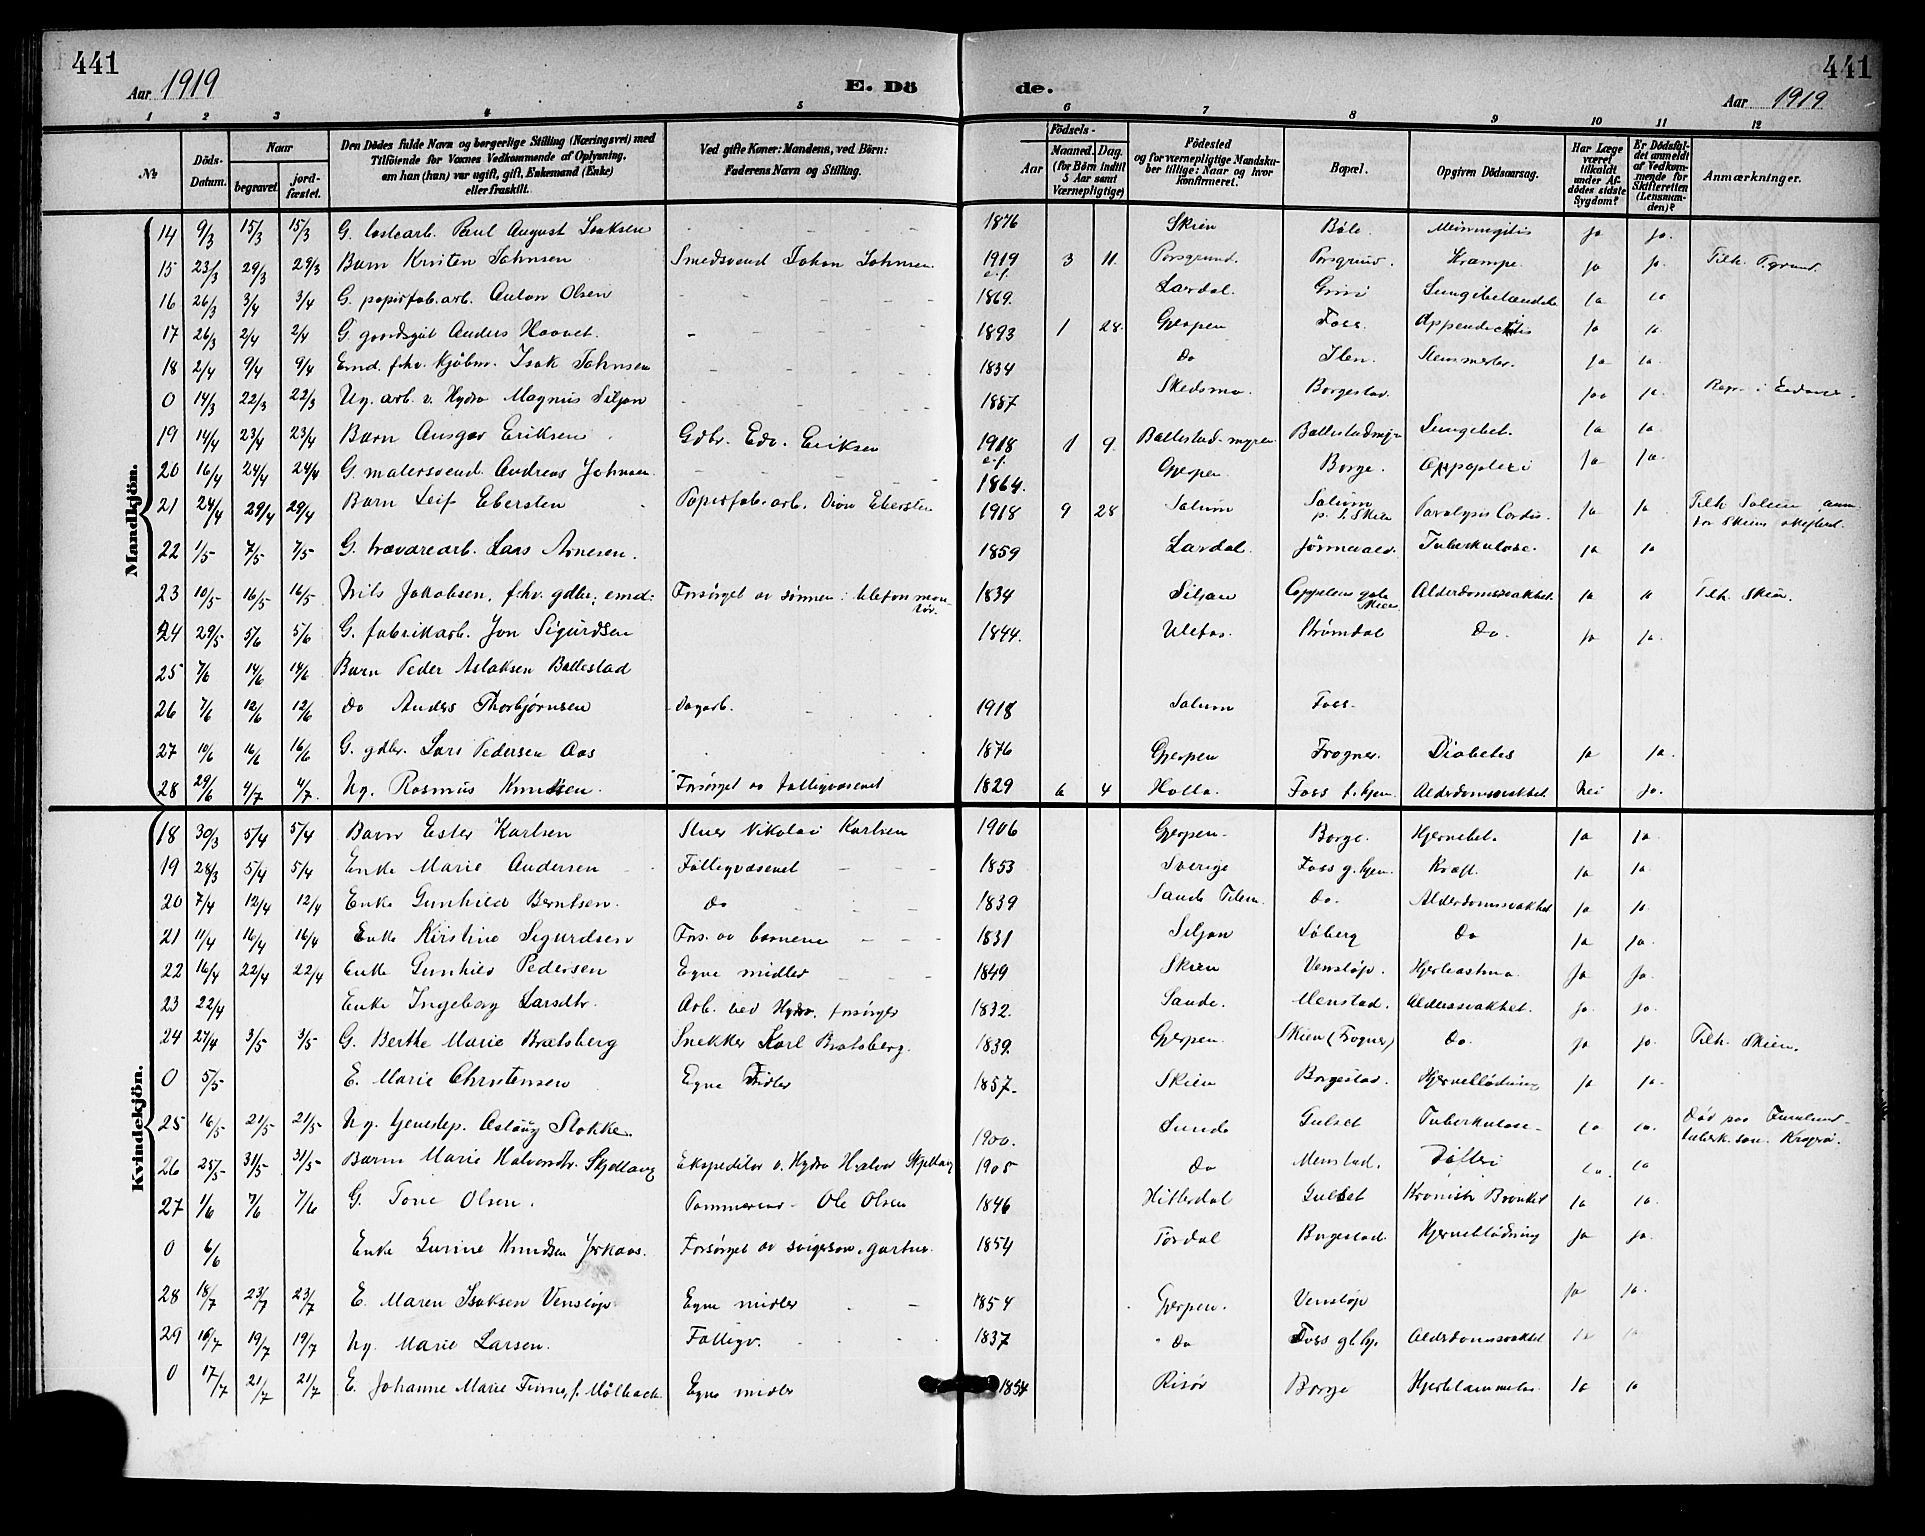 441
441
Aar 1919
E. Dö
de.
Aar 1919
1 2 3 4 5 6 7 8 9 10 11 12
№
Döds-Datum.
Naar
begravet.
jord-fæstet.
Den Dödes fulde Navn og borgerlige Stilling (Næringsvei) med
Tilföiende for Voxnes Vedkommende af Oplysning,
om han (hun) var ugift, gift, Enkemand (Enke)
eller fraskilt.
Ved gifte Koner: Mandens, ved Börn:
Faderens Navn og Stilling.
Födsels-
Aar
Maaned.
Dag.
(for Börn indtil
5 Aar samt
Værnepligtige)
Födested
og for værnepligtige Mandsku-
ber tillige: Naar og hvor
konfirmeret.
Bopæl.
Opgiven Dödsaarsag.
Har Læge
været
tilkaldt
under Af-
dödes sidste
Sygdom?
Er Dödsfal-
det anmeldt
af Vedkom-
mende for
Skifteretten
(Lensman-
den)?
Anmærkninger.
Mandkjön.
14 9/3 15/3 15/3 G. lostearb. Paul August Isaksen 1876 Skien Böle Meinningitis ja ja.
15 23/3 29/3 29/3 Barn Kristen Johnsen Smedsvend Johan Johnsen 1919 e.f. 3 11. Porsgrund. Porsgrund. Krampe ja ja. Tilh. P.grund.
16 26/3 3/4 3/4 G. papirfab.arb. Anton Olsen 1869. Lardal. Grini Lungebetændelse ja ja
17 26/3 2/4 2/4 G. gaardsgut Anders Haavet. 1893 1 28. Gjerpen Foss. Appendicitis ja ja.
18 2/4 9/4 9/4 Emd. fhv. kjöbm. Isak Johnsen 1834 Do Ilen. ja ja.
0 14/3 22/3 22/3 Ug. arb. v. Hydro Magnus Siljan 1887 Skedsmo. Borgestad. jaa ja.
19 14/4 23/4 23/4 Barn Ansgar Eriksen Gdbr. Edv. Eriksen 1918 e.f. 1 9. Ballestad-myren Ballestadmyr Lungebet. ja ja.
20 16/4 24/4 24/4 G. malersvend. Andreas Johnsen. 1864. Gjerpen Borge. Appoplexi ja ja.
21 24/4 29/4 29/4 Barn Leif Ebersten Papirfab.arb. Ebersten 1918 9 28 Solum Solum p. t. Skien Paralysis Cordis. ja ja Tilh. Solum, anm. for Skiens skifteret.
22 1/5 7/5 7/5 G. trævarearb. Lars Arnesen. 1859 Lardal. Tuberkulose. ja ja
23 10/5 16/5 16/5 Nils Jakobsen, f.hv. gdbr., emd: Forsörget av sönnen: telefonmon-tör. 1834 Siljan Cappelens gate Skien Alderdomssvakhet. ja ja Tilh. Skien.
24 29/5 5/6 5/6 G. fabrikarb. Jon Sigurdsen 1844. Ulefos. Strömdal Do. ja ja.
25 7/6 14/6 14/6 Barn Peder Aslaksen Ballestad
26 7/6 12/6 12/6 Do Anders Thorbjörnsen Dagarb. 1918 Solum Foss.
27 10/6 16/6 16/6 G. gdbr. Lars Pedersen Aas 1876 Gjerpen Frogner. Diabetes ja ja.
28 29/6 4/7 4/7. Ug. Rasmus Knudsen. Forsörget av fattigvæsenet 1829 6 4 Holla. Foss f.hjem. Alderdomssvakhet. Nei ja.
Kvindekjön.
18 30/3 5/4 5/4 Barn Ester Karlsen Stuer Nikolai Karlsen 1906 Gjerpen. Borge. Hjernebet. ja ja.
19 28/3 5/4 5/4 Enke Marie Andersen Fattigvæsenet 1853 Sverige Foss g. hjem. Kræft. ja ja.
20 7/4 12/4 12/4 Enke Gunhild Berntsen. do 1839 Saude Telem. Do. Alderdomssvakhet ja ja.
21 11/4 16/4 16/4 Enke Kirstine Sigurdsen Fors. av barnene 1831 Siljan Söberg Do ja ja.
22 16/4 22/4 22/4 Enke Gunhild Pedersen Egne midler 1849 Skien Venstöp. Hjerteastma. ja ja.
23 22/4 Enke Ingeborg Larsdtr. Arb. ved Hydro. forsörger 1832. Saude. Menstad. Alderssvakhet. ja. ja.
24 27/4 3/5 3/5 G. Berthe Marie Bratsberg Snekker Karl Bratsberg. 1839. Gjerpen. Skien (Frogner) Do. ja ja. Tilh. Skien.
0 5/5 E. Marie Christensen Egne Midler 1857. Skien Borgestad. Hjerneblödning ja ja.
25 16/5 21/5 21/5 Ug. tjenestep. Aslaug Stokke. 1900. Lunde Gulset Tuberkulose. ja ja. Död paa
26 25/5 31/5 31/5 Barn Marie Halvorsdtr. Skjellaug Ekspeditör v. Hydro Halvor Skjellaug 1905 Do Menstad. Difteri ja. ja
27 1/6 7/6 7/6 G. Tone Olsen. Tømmermd. Ole Olsen 1846 Hitterdal Gulset Kronisk Bronkit ja ja.
0 6/6 Enke Gurine Knudsen Forsörget av svigersøn, gartner. 1854 Tördal Borgestad. Hjerneblödning ja ja.
28 18/7 23/7 23/7 E. Maren Isaksen Venstöp Egne midler 1854 Gjerpen. Venstöp ja ja.
29 16/7 19/7 19/7 Ug. Marie Larsen. Fattigv. 1837 Do Foss gl.hj. Alderdomssvakhet ja ja
0 17/7 21/7 21/7 E. Johanne Marie f. Mölbach Egne midler 1854 Risör Borge Hjertelammelse. ja ja